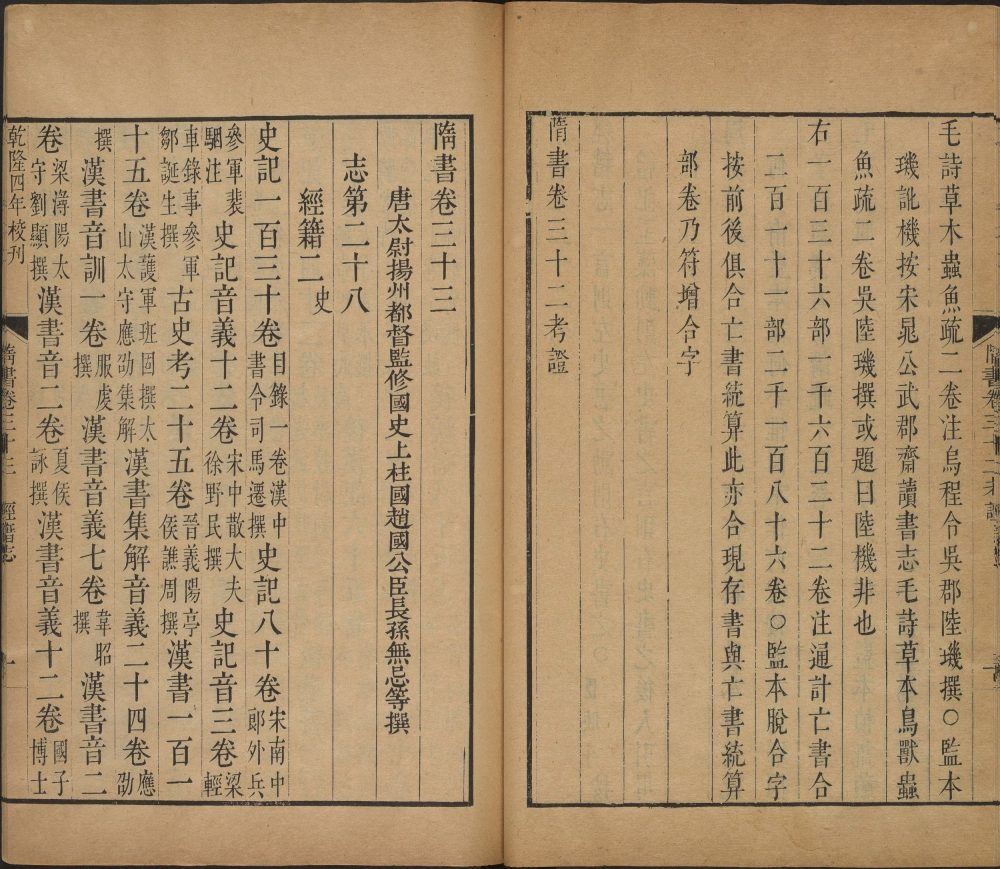 隋書卷三十二考證
毛詩草木蟲魚疏二卷注烏程令吳郡陸璣撰○監本
璣訛機按宋晁公武郡齋讀書志毛詩草木鳥獸蟲
魚疏二卷吳陸璣撰或題曰陸機非也
右一百三十六部一千六百二十二卷注通計亡書合
二百一十一部二千一百八十六卷○監本脫合字
按前後俱合亡書統算此亦合現存書與亡書統算
部卷乃符增合字
隋書卷三十二考證
隋書卷三十三
唐太尉揚州都督監修國史上柱國趙國公臣長孫無忌等撰
志第二十八
經籍二史
史記一百三十卷目錄一卷漢中書令司馬遷撰史記八十卷宋南中郎外兵
參軍裴駰注史記音義十二卷宋中散大夫徐野民撰史記音三卷梁輕
車錄事參軍鄒誕生撰古史考二十五卷晉義陽亭侯譙周撰漢書一百一
十五卷漢護軍班固撰太山太守應劭集解漢書集解音義二十四卷應劭
撰漢書音訓一卷服虔撰漢書音義七卷韋昭撰漢書音二
卷梁潯陽太守劉顯撰漢書音二卷夏侯詠撰漢書音義十二卷國子博士
乾隆四年校刊
隋書卷三十三 經籍志 一